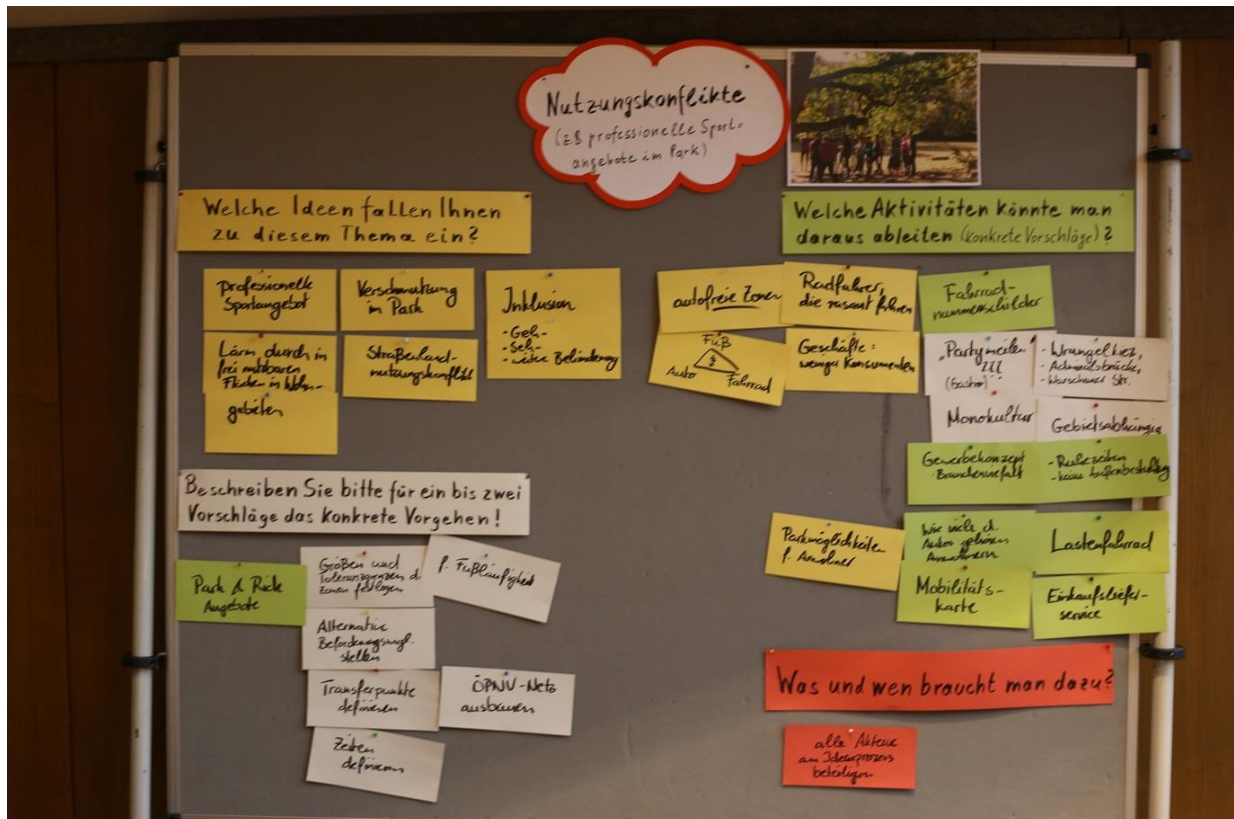 Nutzungskonflikte
(z.B professionelle Sport-
angebote im Park)
Welche Ideen fallen Ihnen
zu diesem Thema ein?
Professionelle
Sportangebot
Verschmutzung
im Park
Inklusion
- Geh-
- Seh-
- weitere Behinderung
Lärm durch in
frei nutzbaren
Flächen in Wohn-
gebieten
Straßenland-
nutzungskonflikt
autofreie Zonen
Radfahrer,
die rasant fahren
Fuß
Auto
Fahrrad
Geschäfte:
weniger Konsumenten
Welche Aktivitäten könnte man
daraus ableiten (konkrete Vorschläge)?
Fahrrad-
nummernschilder
Partymeilen
(Gastro)
- Wrangelkiez,
- Admiralbrücke,
- Warschauer Str.
Monokultur
Gebietsabhängig
Gewerbekonzept
- Branchenvielfalt
- Ruhezeiten
- keine Außenbestuhlung
Parkmöglichkeiten
f. Anwohner
Wie viele d.
Autos gehören
Anwohnern
Lastenfahrrad
Mobilitäts-
karte
Einkaufsliefer-
service
Beschreiben Sie bitte für ein bis zwei
Vorschläge das konkrete Vorgehen!
Park & Ride
Angebote
Größen und
Toleranzgrenzen d.
Zonen festlegen
f. Fußläufigkeit
Alternative
stellen
Transferpunkte
definieren
ÖPNV-Netz
ausbauen
Zeiten
definieren
Was und wen braucht man dazu?
alle Akteure
am Ideenprozess
beteiligen